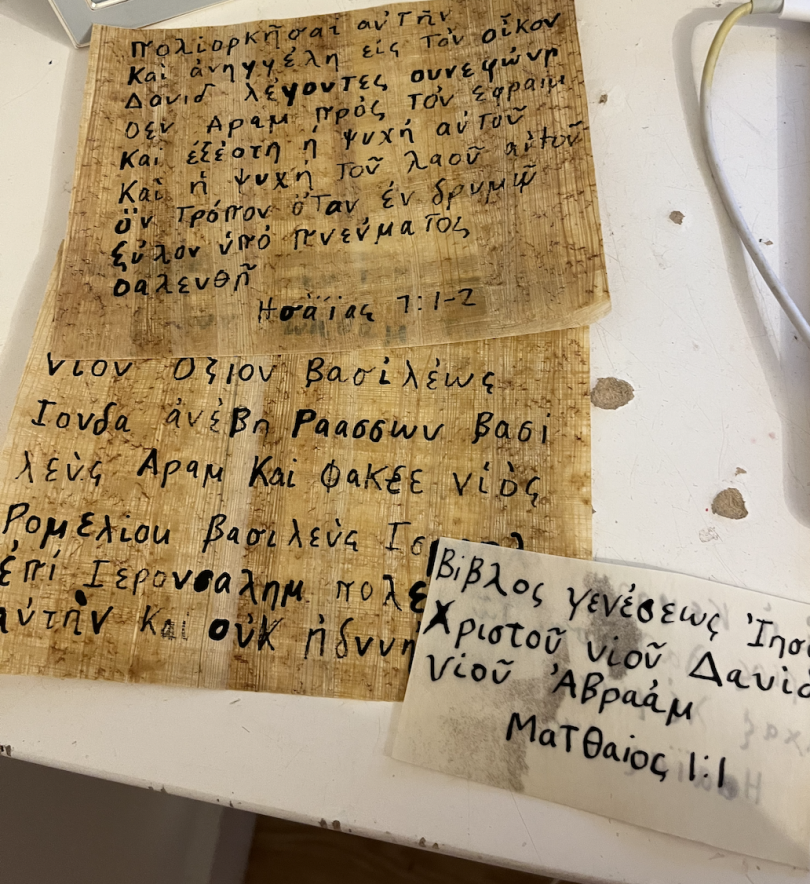 πολιορκῆσαι αὐτὴν
Καὶ ἀνηγγέλη εἰς τὸν οἶκον
Δαυιδ λέγοντες συνεφώνη
σεν Αραμ πρὸς τὸν εφραιμ
Καὶ ἐξέστη ἡ ψυχή αὐτοῦ
Καὶ ἡ ψυχὴ τοῦ λαοῦ αὐτοῦ
ὃν τρόπον ὅταν ἐν δρυμῷ
ξύλον ὑπό πνεύματος
σαλευθῇ
Ησαΐας 7:1-2
υιου Οζιου βασιλέως
Ιουδα ἀνέβη Ραασσων βασι
λεὺς Αραμ Καὶ φακεε υἱὸς
Ρομελιου βασιλεὺς
ἐπί Ιερουσαλημ πολε
αὐτὴν Καὶ οὐκ ἠδυνη
Βίβλος γενέσεως Ἰησ
Χριστοῦ υἱοῦ Δαυὶδ
υἱοῦ Ἀβραάμ
Ματθαιος 1:1